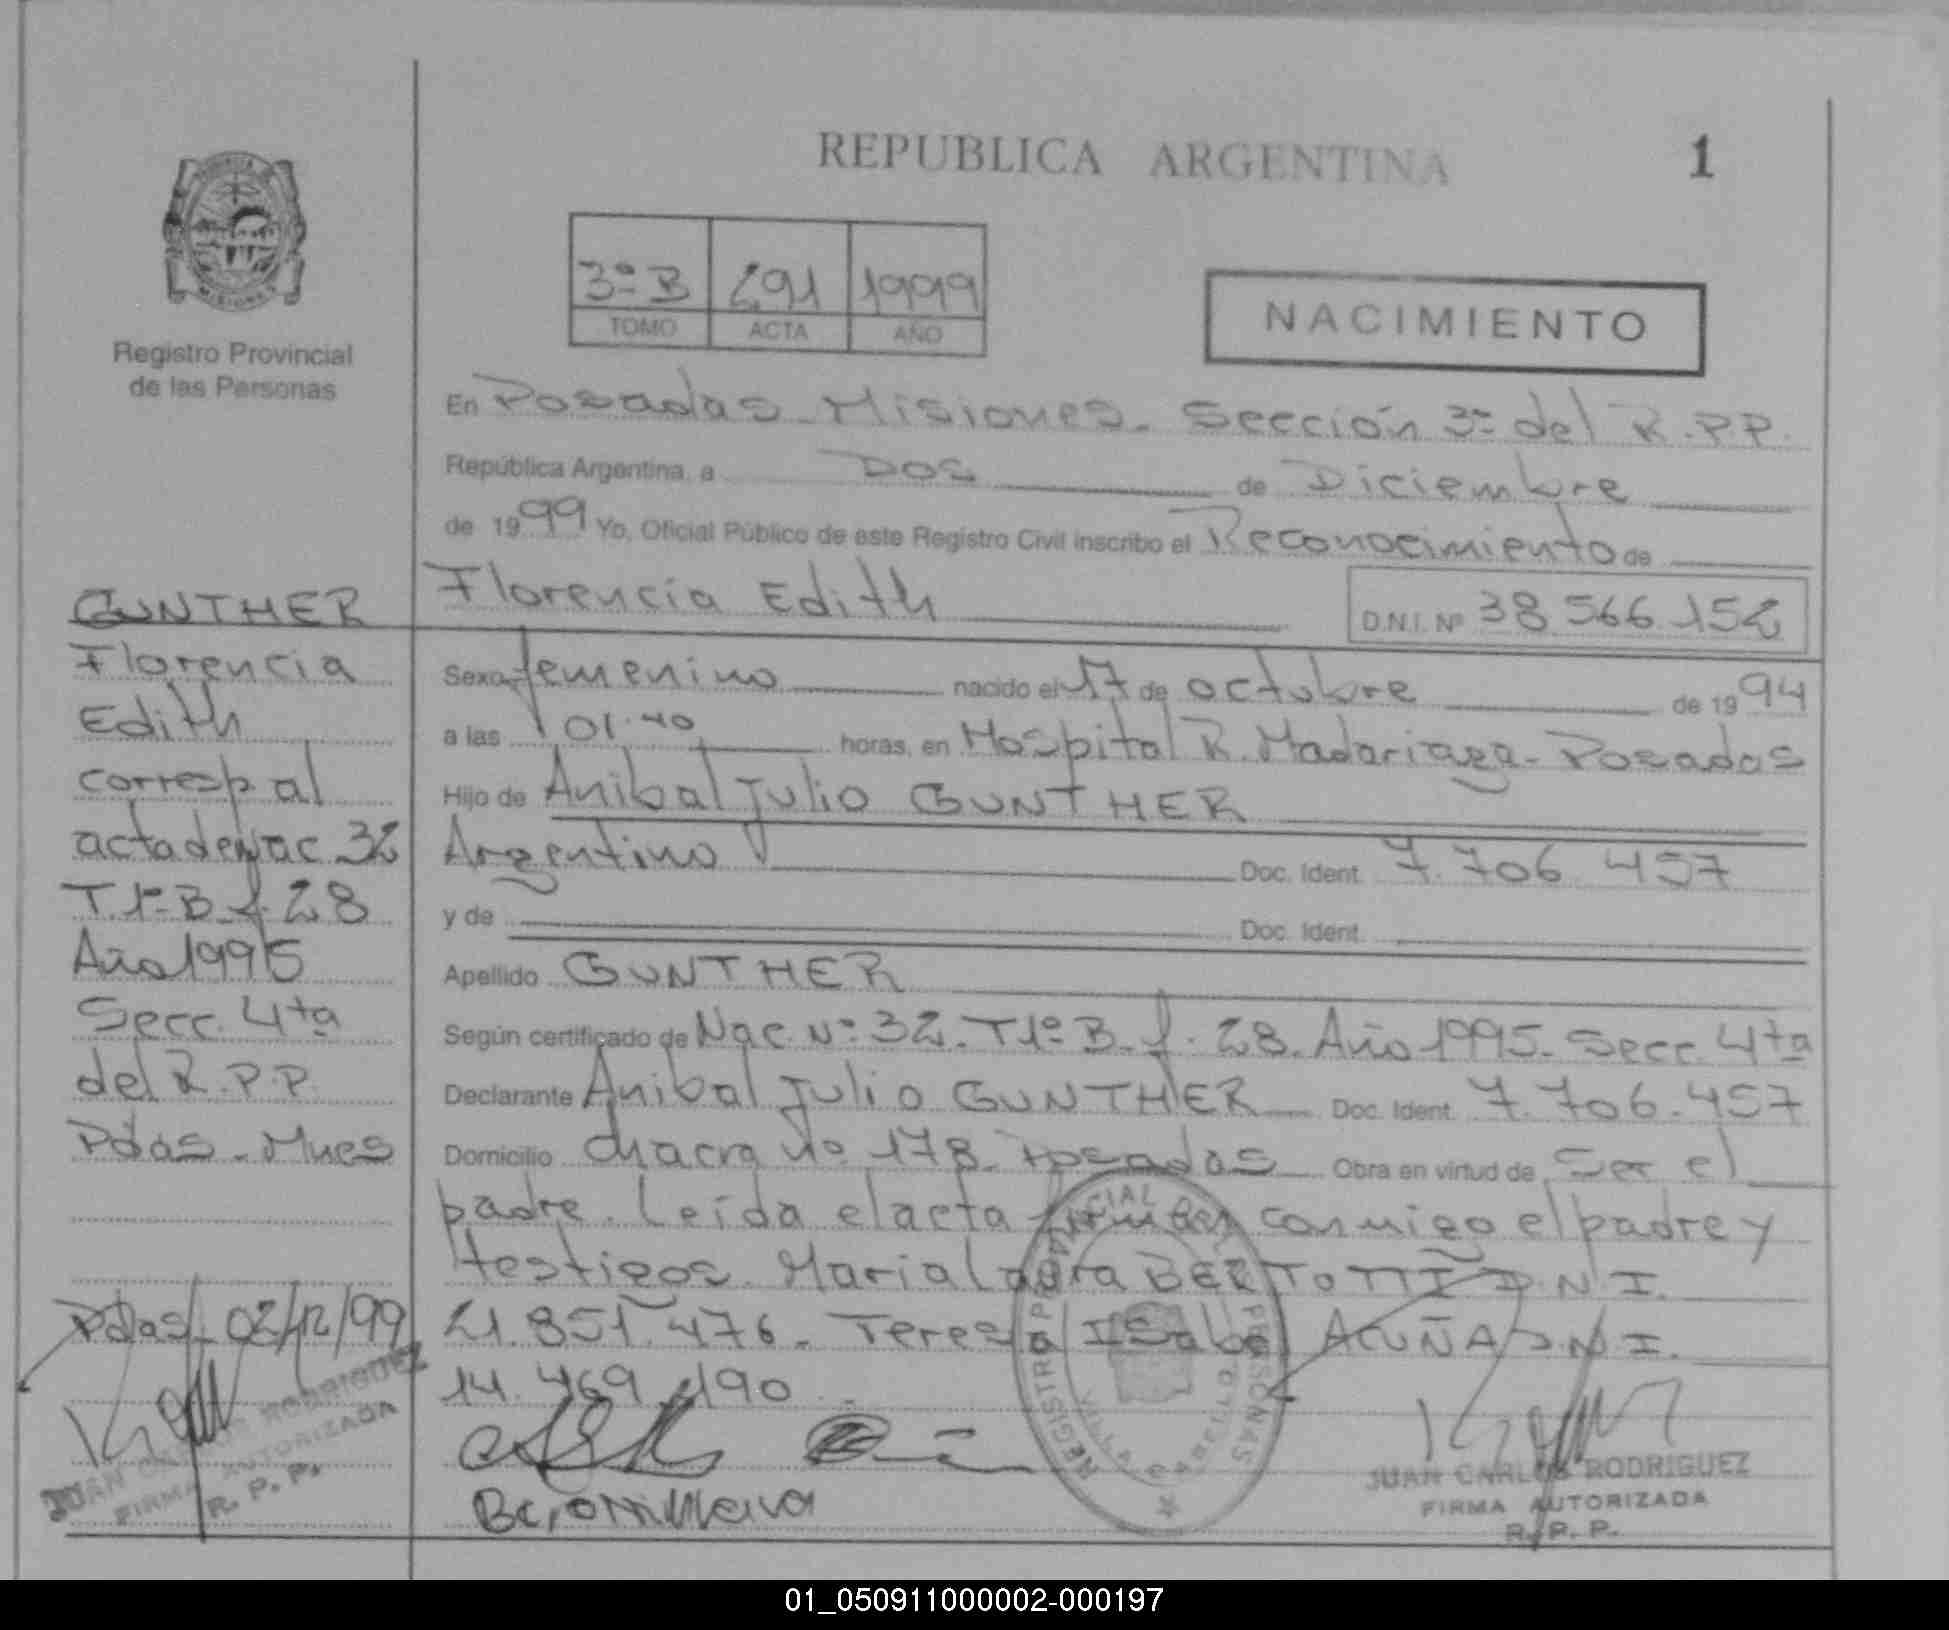 REPUBLICA ARGENTINA
1
3º B 291 1999
TOMO ACTA AÑO
NACIMIENTO
Registro Provincial
de las Personas
En Posadas - Misiones. Sección 3º del R.P.P.
República Argentina, a Dos de Diciembre
de 1999 Yo, Oficial Público de este Registro Civil inscribo el Reconocimiento de
Florencia Edith D.N.I. Nº 38 566 152
Sexo femenino nacido el 17 de octubre de 1994
a las 01.40 horas, en Hospital R. Madariaga - Posadas
Hijo de Anibal Julio GUNTHER
Argentino Doc. Ident. 7.706.457
y de Doc. Ident.
Apellido GUNTHER
Según certificado de Nac. Nº 32. T1º B. f. 28. Año 1995. Secc. 4ta
Declarante Anibal Julio GUNTHER Doc. Ident. 7.706.457
Domicilio Chacra Nº 178 Posadas Obra en virtud de Ser el
padre. Leída el acta firman conmigo el padre y
testigos Maria Laura BERTOTTI D.N.I.
21.851.476 - Teresa Isabel ACUÑA D.N.I.
14.469.190
GUNTHER
Florencia
Edith
corresp al
acta de nac 32
T.1º B f. 28
Año 1995
Secc. 4ta
del R.P.P.
Pdas - Mnes
Pdas - 02/12/99
JUAN CARLOS RODRIGUEZ
FIRMA AUTORIZADA
R. P. P.
REGISTRO PROVINCIAL PERSONAS
JUAN CARLOS RODRIGUEZ
FIRMA AUTORIZADA
R. P. P.
01_050911000002-000197